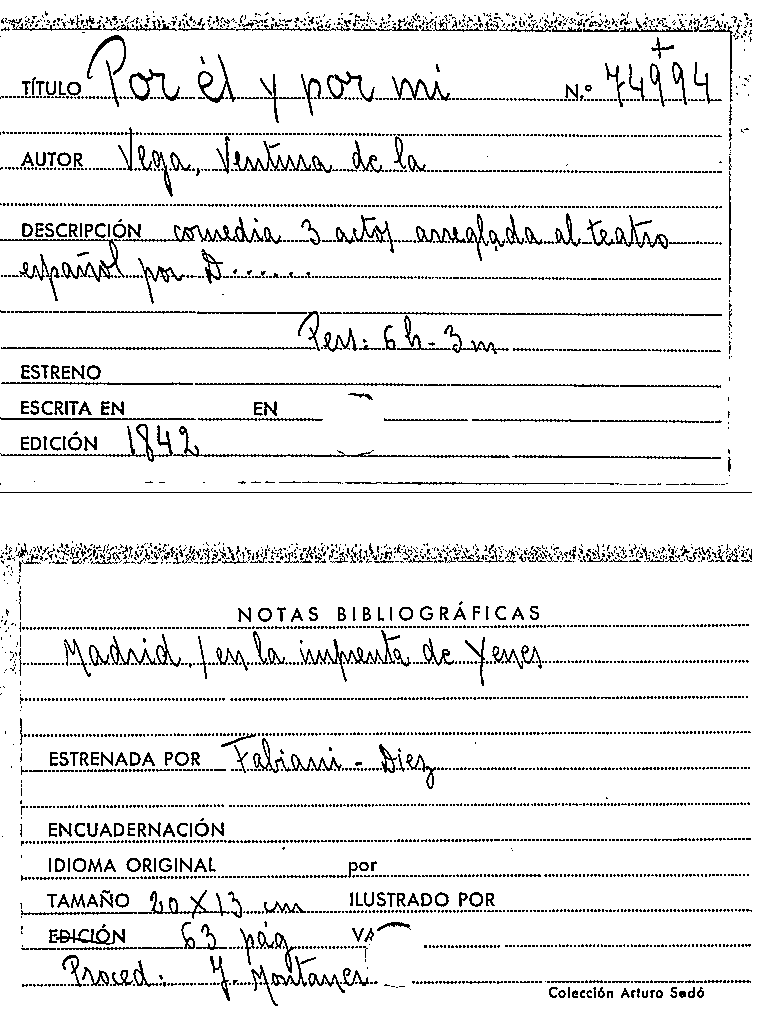 +
TÍTULO Por él y por mi N.º 74994
AUTOR Vega, Ventura de la
DESCRIPCIÓN comedia 3 actos arreglada al teatro
español por D......
Pers: 6 h - 3 m
ESTRENO
ESCRITA EN EN
EDICIÓN 1842
NOTAS BIBLIOGRÁFICAS
Madrid, / en la imprenta de Yenes
ESTRENADA POR Fabiani - Diez
ENCUADERNACIÓN
IDIOMA ORIGINAL por
TAMAÑO 20 X 13 cm ILUSTRADO POR
EDICIÓN 63 pág
Proced: J. Montanes
Colección Arturo Sedó